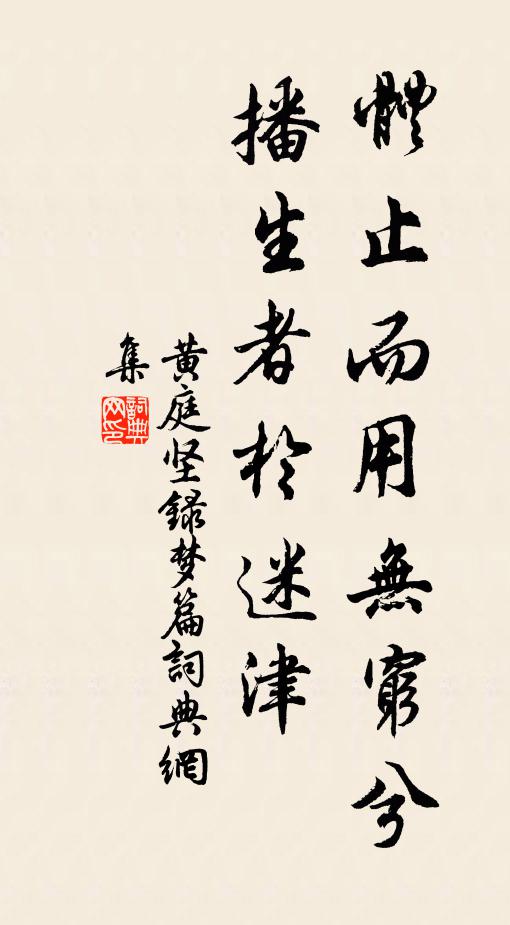 體止而用無窮兮
播生者於迷津
黄庭坚録梦篇詞典網
集
詞典网印